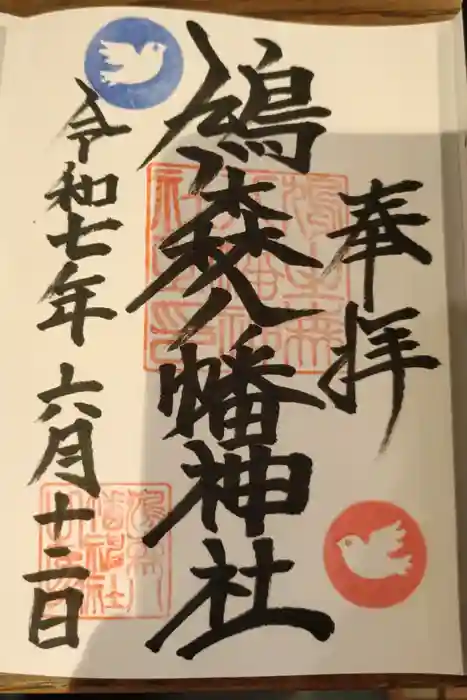 奉拝
鳩森八幡神社
令和七年 六月十二日